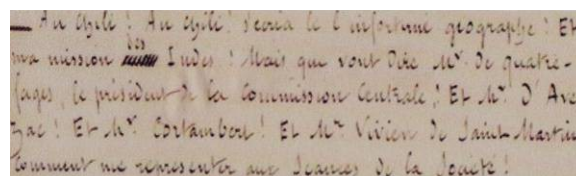 — Au Chili ! Au Chili ! s'écria le l'infortuné géographe ! Et
ma mission des Indes ! Mais que vont dire Mr. de quatre-
fages, le président de la Commission Centrale ! Et Mr. d'Ave
zac ! Et Mr. Cortambert ! Et Mr. Vivien de Saint-Martin
Comment me représenter aux séances de la Société !